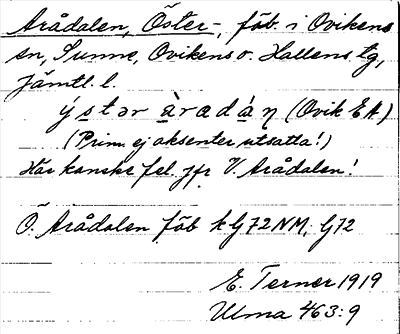 Arådalen, Öster-, fäb. i Ovikens
sn, Sunne, Ovikens o. Hallens tg,
Jämtl. l.
ýstər àradáη (Ovik EA)
(Prim. ej aksenter utsatta!)
Här kanske fel. jfr V. Arådalen!
Ö. Arådalen fäb k G72NM, G72
E. Terner 1919
Ulma 463:9